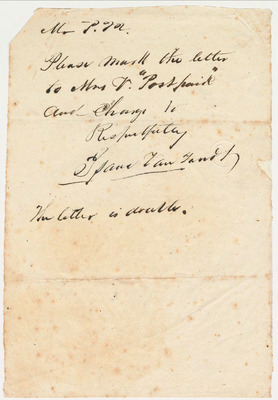 Mr P.M.
Please mark the letter
to Mrs V. "Postpaid"
and Charge to
Respectfully
Isaac Van Zandt
The letter is double.